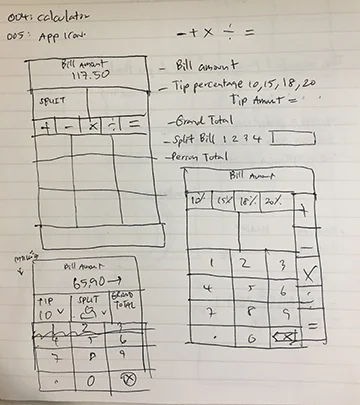 004: calculator
005: App Icon
- + × ÷ =
Bill Amount
117.50
SPLIT
+ - × ÷ =
- Bill amount
- Tip percentage 10, 15, 18, 20
Tip Amount =
- Grand Total
- Split Bill 1 2 3 4
- Person Total
Bill Amount
10% 15% 18% 20%
+
-
×
÷
=
1 2 3
4 5 6
7 8 9
. 0 ⌫
Bill Amount
65,90 →
TIP SPLIT GRAND
10 TOTAL
1 2 3
4 5 6
7 8 9
. 0 ⌫